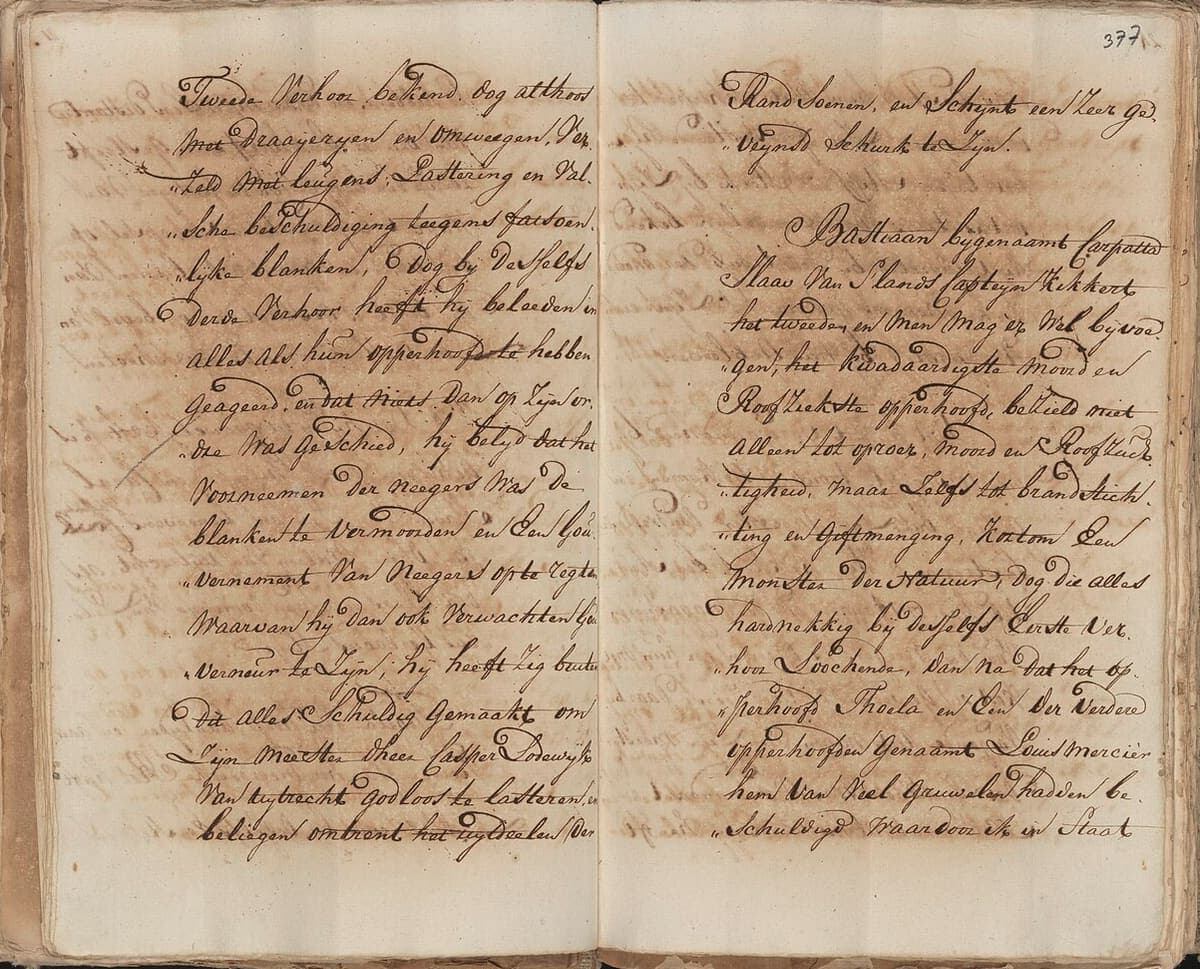 Tweede Verhoor bekend. dog althoos
met draaijeryen en omweegen, Ver-
„Zeld met leugens, Lastering en Val-
„sche beschuldiging teegens fatsoen-
„lijke blanken, Dog bij Desselfs
Derde Verhoor heeft hij beleeden in
alles als hun opperhoofd te hebben
geageerd, en dat niets dan op Zijn or-
„dre was geschied, hij belijd dat het
Voorneemen der neegers was de
blanken te vermoorden en Een Gou-
„vernement van Neegers op te regten
Waarvan hij dan ook verwachten Gou-
„verneur te Zijn, hij heeft Zig buiten
Dit alles Schuldig Gemaakt om
Zijn Meester dheer Casper Lodewijk
Van uytrecht godloos te lasteren, en
beliegen omtrent het uytdeelen Der
377
Randsoenen, en Schijnt een Zeer ge-
„veynsd Schurk te Zijn.
Bastiaan bijgenaamt Carpatta
Slaav van S'lands Capteijn Kikkert
het tweede, en Men mag er wel bijvoe-
„gen, het kwadaardigste moord en
Roof Ziekste opperhoofd, bezield niet
alleen tot oproer, moord en Roofzuch-
„tigheid, maar Zelfs tot brandstich-
„ting en Giftmenging, kortom Een
monster der Natuur, Dog die alles
hardnekkig bij Desselfs Eerste Ver-
„hoor Loochende, dan na dat het op-
„perhoofd Thoela en Een der Verdere
opperhoofden Genaamt Louis Mercier
hem van veel Gruwelen hadden be-
„schuldigd waardoor ik in Staat